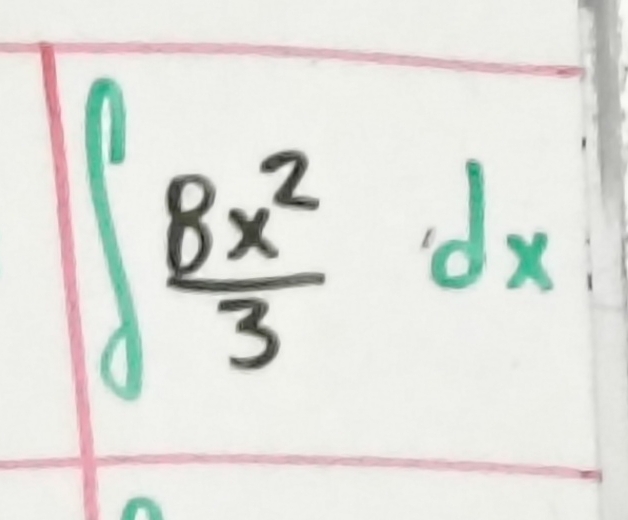 ∫ 8x²/3 dx